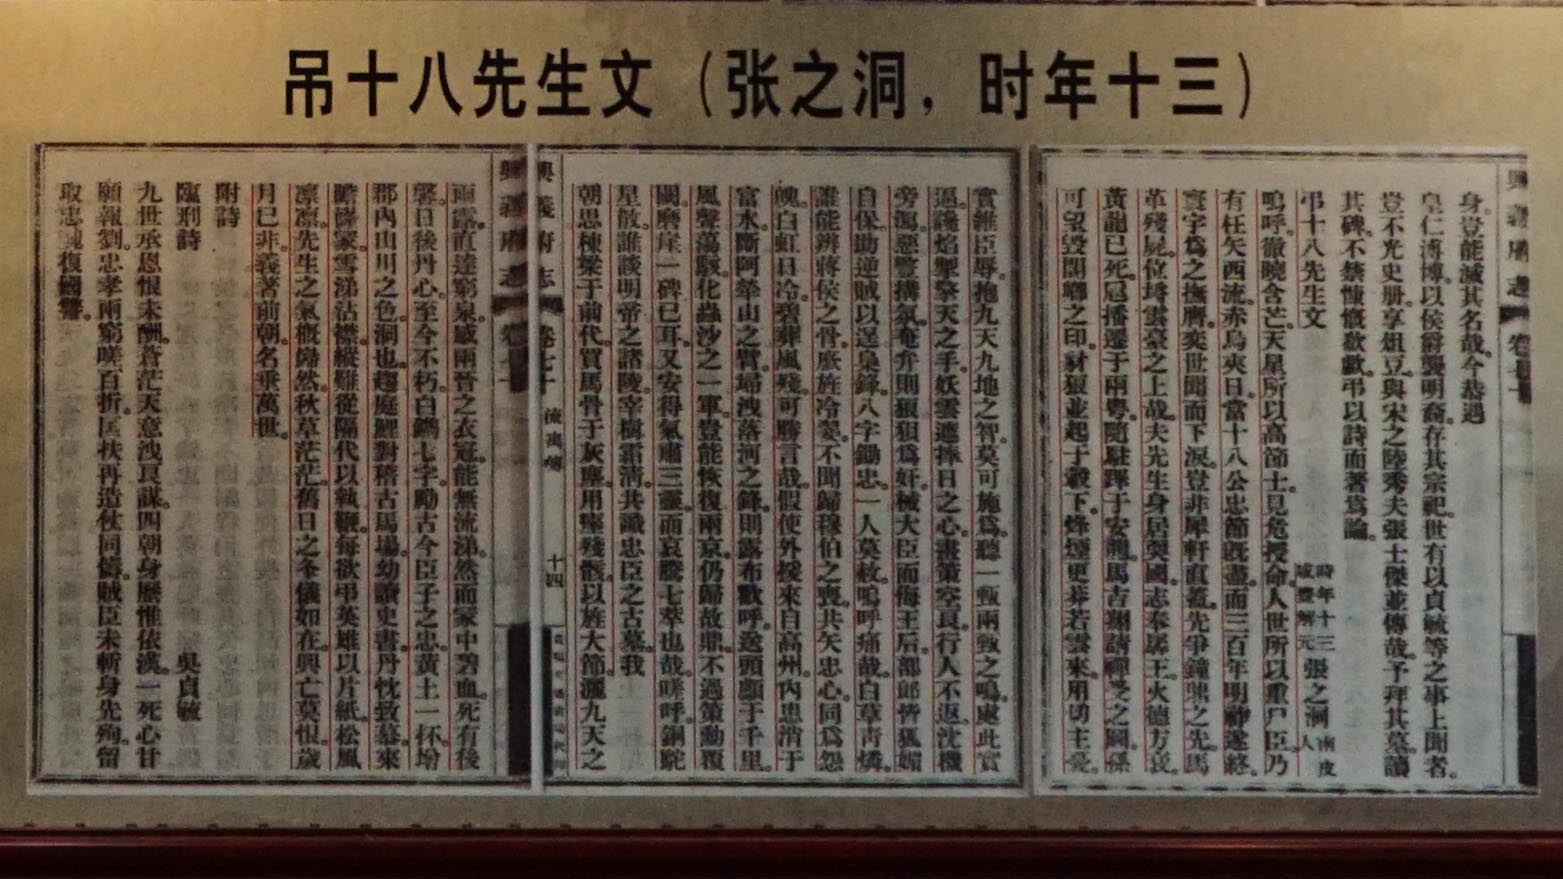 吊十八先生文（张之洞，时年十三）
興義府志
卷七十
身豈能滅其名哉今恭遇
皇仁溥博以侯爵襲明裔存其宗祀世有以貞毓等之事上聞者
豈不光史册享俎豆與宋之陸秀夫張士傑並傳哉予拜其墓讀
其碑不禁慷慨歔欷弔以詩而著爲論
弔十八先生文
時年十三 張之洞 南皮人
咸豐解元
嗚呼徹曉含芒天星所以高節士見危授命人世所以重尸臣乃
有枉矢西流赤烏夾日當十八公忠節既盡而三百年明祚遂終
寰宇爲之撫膺奕世聞而下淚豈非犀軒直蓋先爭鐘鼎之先馬
革殘屍位埒雲臺之上哉夫先生身居異國志奉孱王火德方衰
黃龍已死冠播遷于兩粤隨駐蹕于安龍馬吉翔請禪受之圖孫
可望毀閣卿之印豺狼並起于轂下烽煙更暮若雲來用切主憂
實維臣辱抱九天九地之智莫可施爲聽一甄兩甄之鳴處此實
逼讒焰掣擎天之手妖雲遮捧日之心畫策空良行人不返沈機
旁瀉惡豎搆氛奄弁則狼狽爲奸械大臣而侮王后部郎皆狐媚
自保助逆賊以逞梟鋒八字鋤忠一人莫赦嗚呼痛哉白草青燐
誰能辨蔣侯之骨麼旌冷翣不聞歸穆伯之喪其矢忠心同爲怨
魄白虹日冷碧葬風殘可勝言哉假使外援來自高州內患消于
富水斷阿犖山之臂場洩落河之鋒則露布歡呼送頭顱于千里
風聲蕩駭化蟲沙之一軍豈能恢復兩京仍歸故鼎不過策勳覆
闕磨崖一碑已耳又安得氣肅三靈而哀騰七萃也哉嗟呼銅駝
星散誰談明帝之諸陵宰樹霜清共識忠臣之古墓我
朝思棟梁于前代買馬骨于灰塵用瘞殘骸以旌大節灑九天之
興義府志
卷七十
流寓傳
十四
雨露直達窮泉感兩晉之衣冠能無流涕然而冢中碧血死有後
聲日後丹心至今不朽白鐫七字勵古今臣子之忠黃土一抔增
郡內山川之色洞也趨庭鯉對稽古馬場幼讀史書丹忱致慕來
瞻隆冢雪涕沾襟縱難從隔代以執鞭每欲弔英雄以片紙松風
凛凛先生之氣概歸然秋草茫茫舊日之冬儀如在興亡莫恨歲
月已非義著前朝名垂萬世
附詩
臨刑詩
吳貞毓
九世承恩恨未酬蒼茫天意洩良謀四朝身歷惟依漢一死心甘
願報劉忠孝兩窮嗟百折匡扶再造仗同儔賊臣未斬身先殉留
取忠魂復國讐